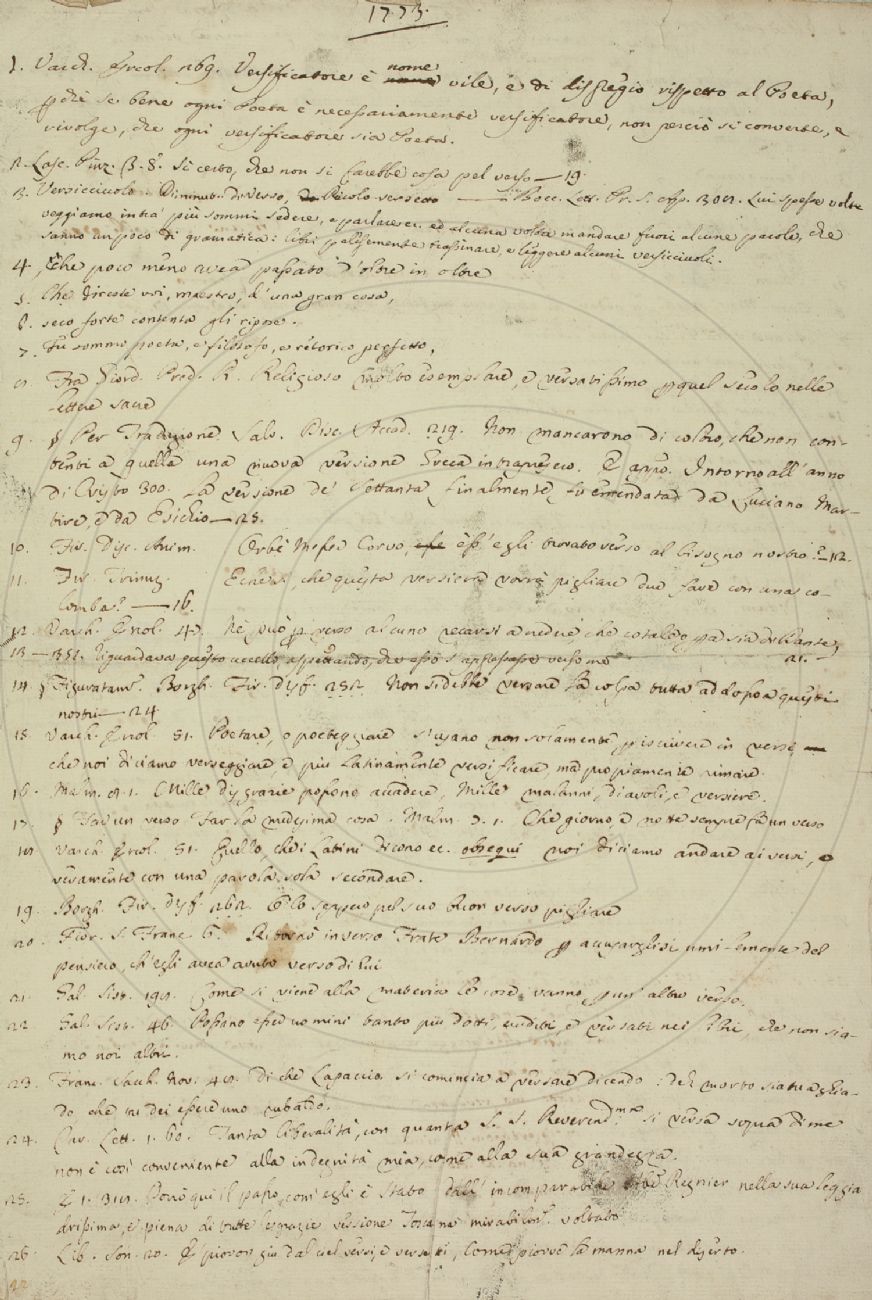 1773.
1. Varch. Ercol. 269. Versificatore è nome vile, e di dispregio rispetto al Poeta,
perchè se bene ogni Poeta è necessariamente versificatore, non perciò si converte, e
rivolge, che ogni versificatore sia Poeta.
2. Lasc. Pinz. 3. 8. Sì certo, che non si farebbe cosa pel verso — 19.
3. Versicciuolo. Diminut. di verso, Piccolo versetto — Bocc. Lett. Pr. S. Ap. 302. Lui spesse volte
veggiamo intra più sommi sedere, e parlare ec. ed alcuna volta mandare fuori alcune parole, che
sanno un poco di gramatica: libri palesemente trassinare, e leggere alcuni versicciuoli.
4. Che poco meno avea passato d'oltre in oltre
5. Che direste voi, maestro, d'una gran cosa,
6. seco forte contenta gli rispose.
7. Fu sommo poeta, e filosofo, e retorico perfetto,
8. Fra Giord. Pred. R. Religioso molto esemplare, e versatissimo per quel secolo nelle
lettere sacre
9. § Per Traduzione. Salv. Disc. Accad. 219. Non mancarono di coloro, che non con-
tenti a quella una nuova versione Greca intrapresero. E appo. Intorno all'anno
di Cristo 300. la versione de' Settanta finalmente fu emendata da Luciano Mar-
tire, e da Esichio — 25.
10. Fir. Disc. Anim. Orbè Messer Corvo, èss'egli trovato verso al bisogno nostro? — 12.
11. Fir. Trinuz. Ecness, che questa versiera vorrà pigliare due fave con una co-
lomba? — 16.
12. Varch. Ercol. 43. Nè può per verso alcuno recarsi a credere che cotale opera sia di Dante;
13 — 351. Riguardava questo uccello, aspettando, che esso s'appressasse verso me 21. —
14. § Figuratam. Borgh. Fir. disf. 252. Non si debbe versare la colpa tutta addosso a questi
nostri — 24
15. Varch. Ercol. 51. Poetare, o poeteggiare s'usano non solamente per iscrivere in versi,
che noi diciamo verseggiare, e più latinamente versificare, ma propiamente rimare.
16. Malm. 2. 1. Mille disgrazie possono accadere, Mille malanni, diavoli, e versiere.
17. § Far un verso Far la medesima cosa. Malm. 3. 1. Che giorno, e notte sempre fa un verso
18. Varch. Ercol. 51. Quello, che i Latini dicono ec. obsequi noi diciamo andare ai versi, o
veramente con una parola sola secondare.
19. Borgh. Fir. disf. 262. E lo seppero pel suo buon verso pigliare
20. Fior. S. Franc. 6. Ritornò inverso Frate Bernardo per accusarglisi umilemente del
pensiero, ch'egli avea avuto verso di lui
21. Gal. Sist. 192. Come si viene alla materia le cose vanno per un altro verso.
22 Gal. Sist. 46. Possano esser uomini tanto più dotti, eruditi, e versati nei libri, che non sia-
mo noi altri.
23. Franc. Sacch. Nov. 48. Di che Lapaccio si comincia a versare dicendo: deh morto sia tu a ghia-
do che tu dei essere uno rubaldo.
24. Car. Lett. 1. 60. Tanta liberalità, con quanta S. S. Reverendma. si versa sopra di me
non è così conveniente alla indegnità mia, come alla sua grandezza.
25. E 1. 312. Porrò qui il passo, com'egli è stato dall'incomparabile Abbé Regnier nella sua leggia
drissima, e piena di tutte le grazie versione Toscana mirabilm. voltato
26. Lib. Son. 20. E' piovon giù dal ciel versi, e versetti, Come piovve la manna nel diserto.
22